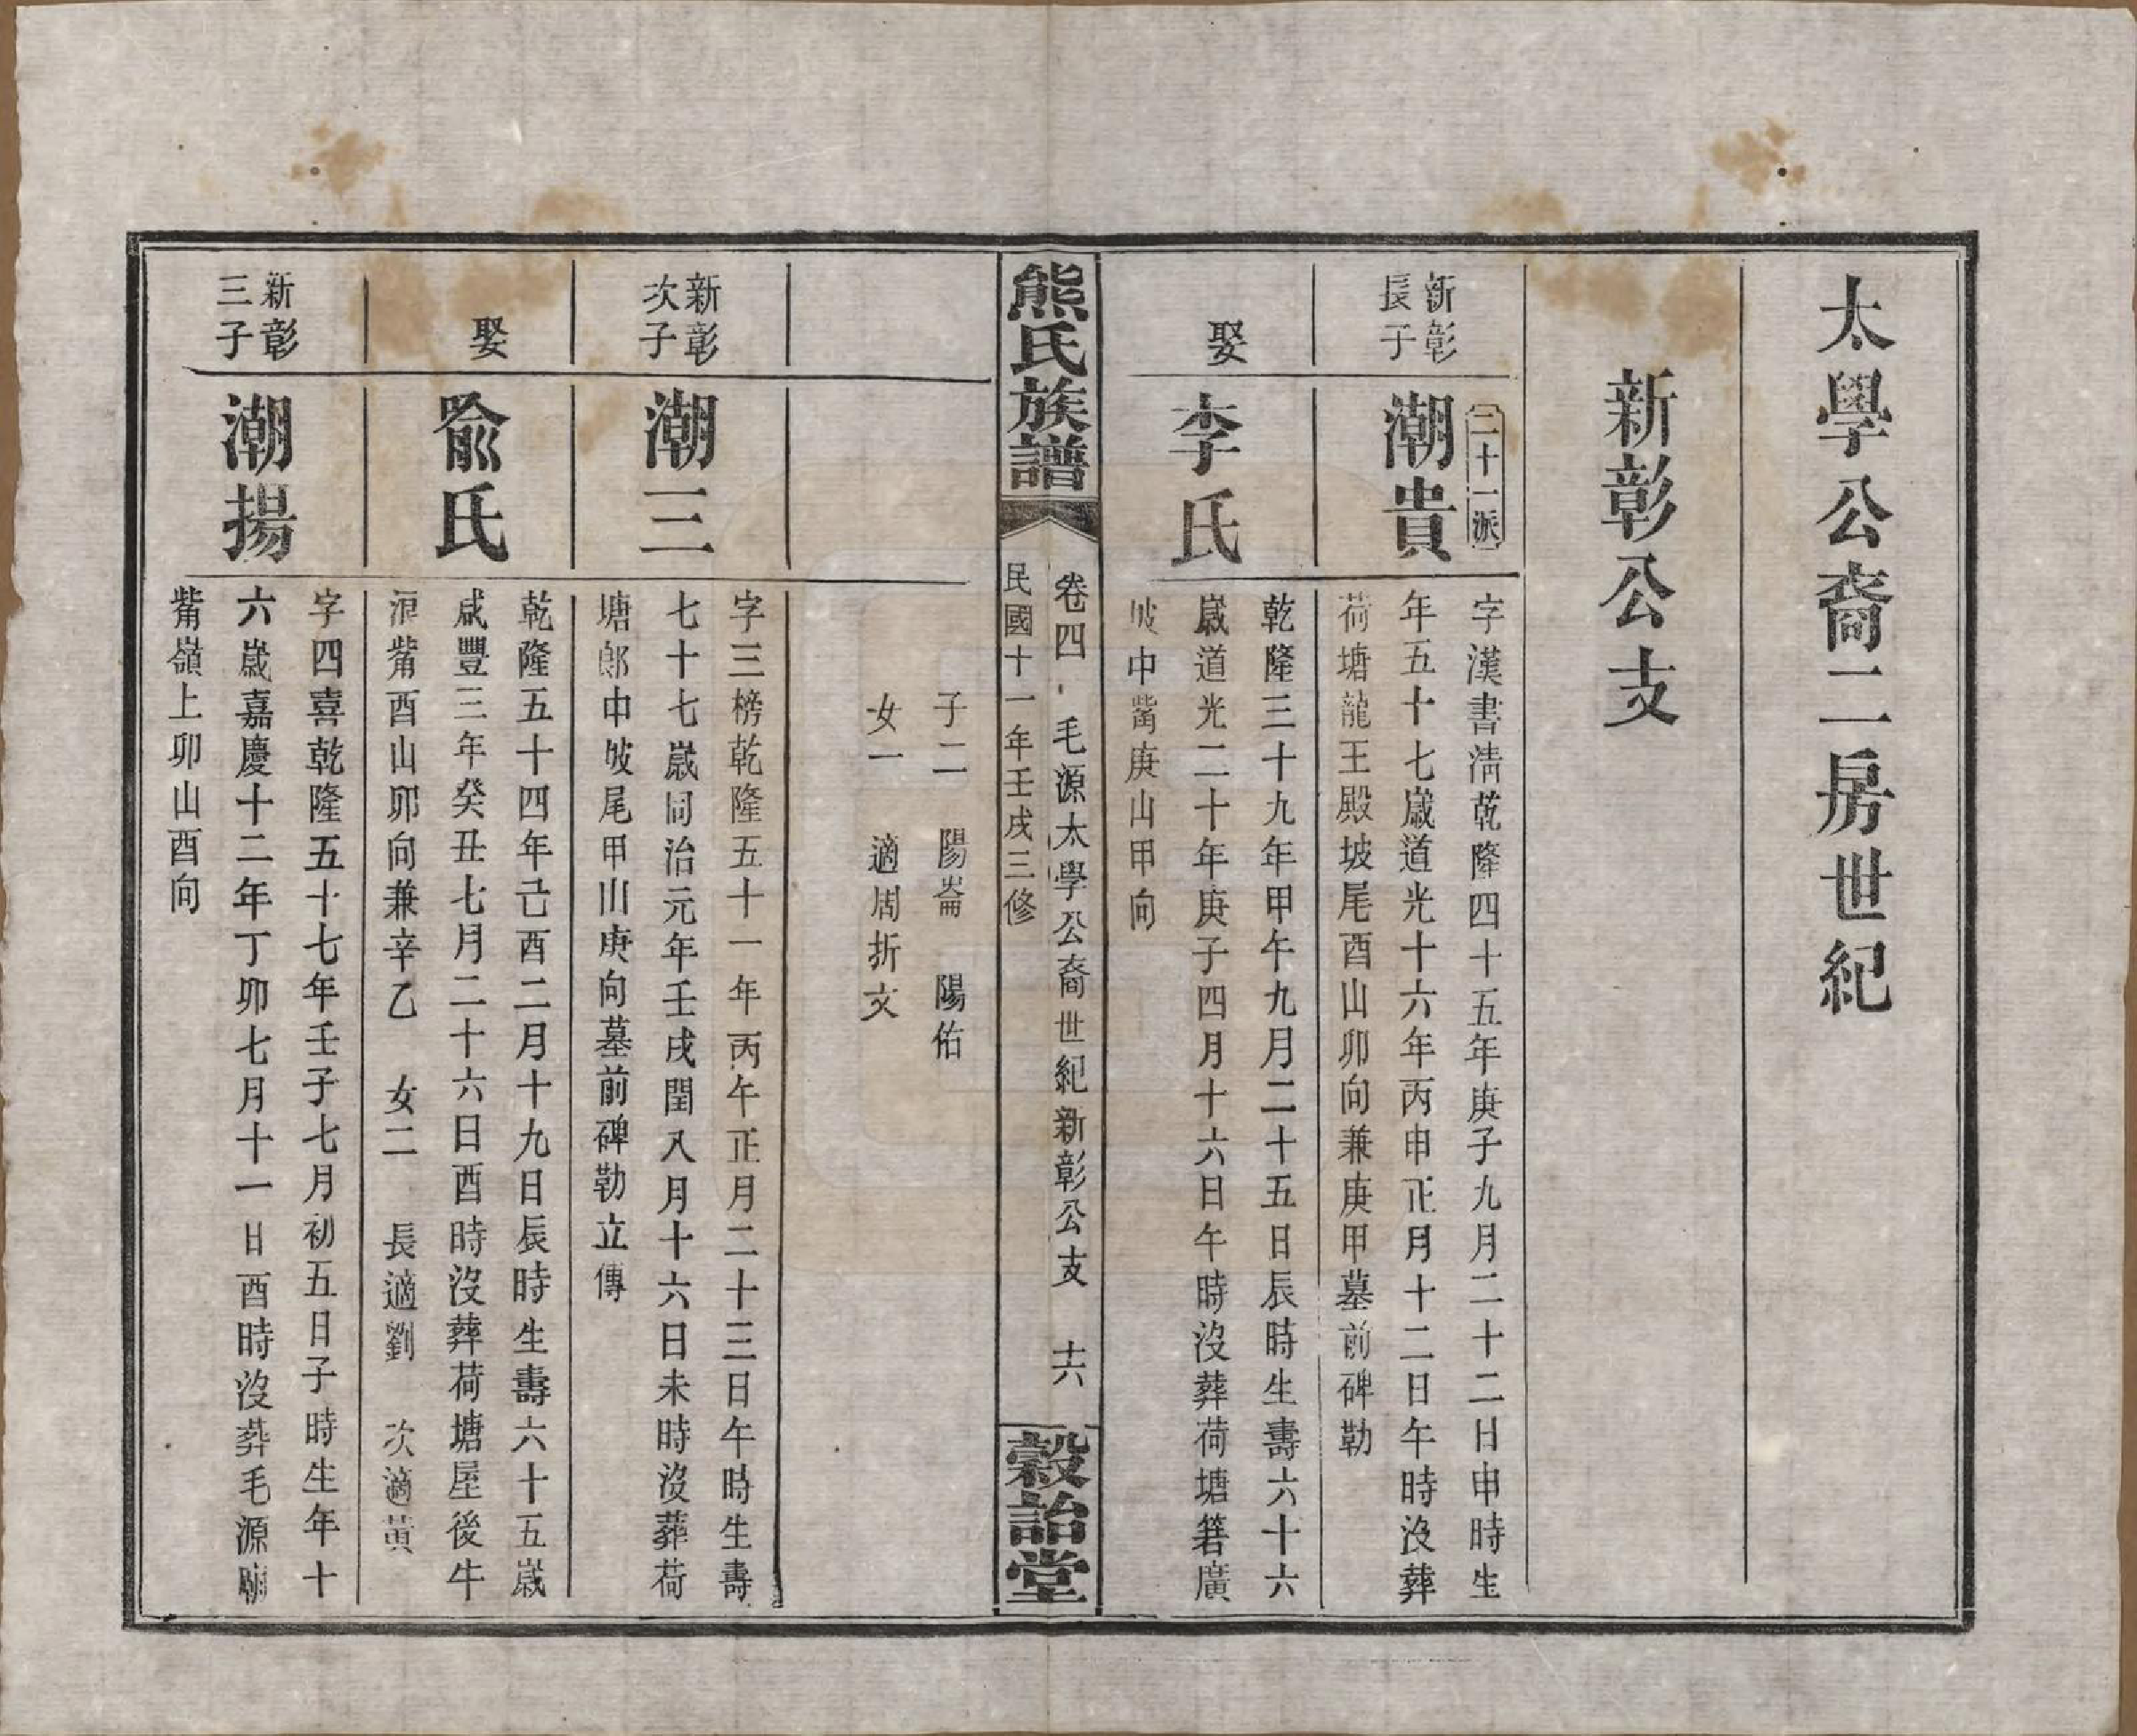 太學公裔二房世紀
新彰公支
新彰
長子
二十一派
潮貴
字漢書清乾隆四十五年庚子九月二十二日申時生
年五十七歲道光十六年丙申正月十二日午時沒葬
荷塘龍王殿坡尾酉山卯向兼庚甲墓前碑勒
娶
李氏
乾隆三十九年甲午九月二十五日辰時生壽六十六
歲道光二十年庚子四月十六日午時沒葬荷塘箬廣
坡中觜庚山甲向
熊氏族譜
卷四 毛源太學公裔世紀新彰公支 十六
民國十一年壬戌三修
穀詒堂
子二 陽崙 陽佑
女一 適周折文
新彰
次子
潮三
字三榜乾隆五十一年丙午正月二十三日午時生壽
七十七歲同治元年壬戌閏八月十六日未時沒葬荷
塘郎中坡尾甲山庚向墓前碑勒立傳
娶
喻氏
乾隆五十四年己酉二月十九日辰時生壽六十五歲
咸豐三年癸丑七月二十六日酉時沒葬荷塘屋後牛
形觜酉山卯向兼辛乙 女二 長適劉 次適黃
新彰
三子
潮揚
字四喜乾隆五十七年壬子七月初五日子時生年十
六歲嘉慶十二年丁卯七月十一日酉時沒葬毛源廟
觜嶺上卯山酉向